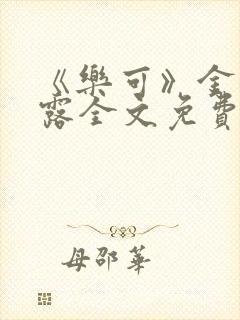 《樂可》金
露全文免費
母邵華